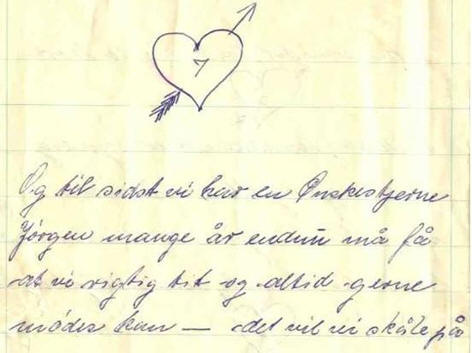 7
Og til sidst vi har en Ønskestjerne
Jörgen mange år endnu må få
at vi rigtig tit og altid gerne
mödes kan — det vil vi skåle på